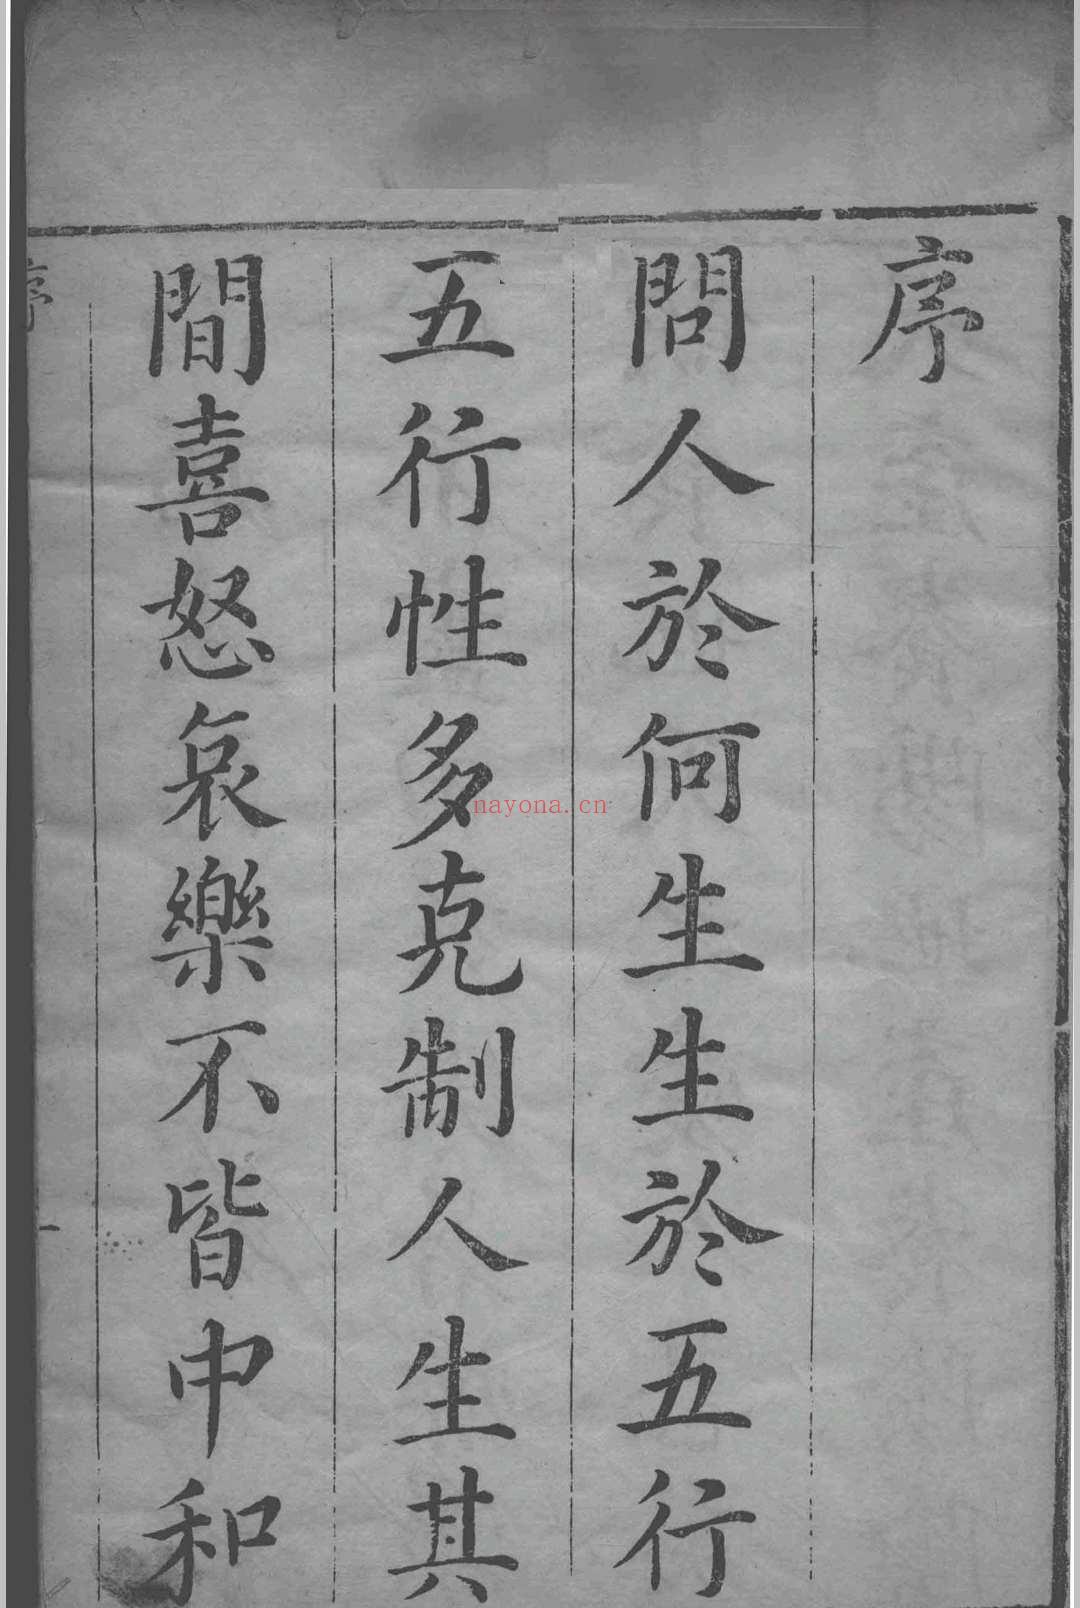 序
問人於何生生於五行
五行性多克制人生其
間喜怒哀樂不皆中和
序
一
nayona.cn